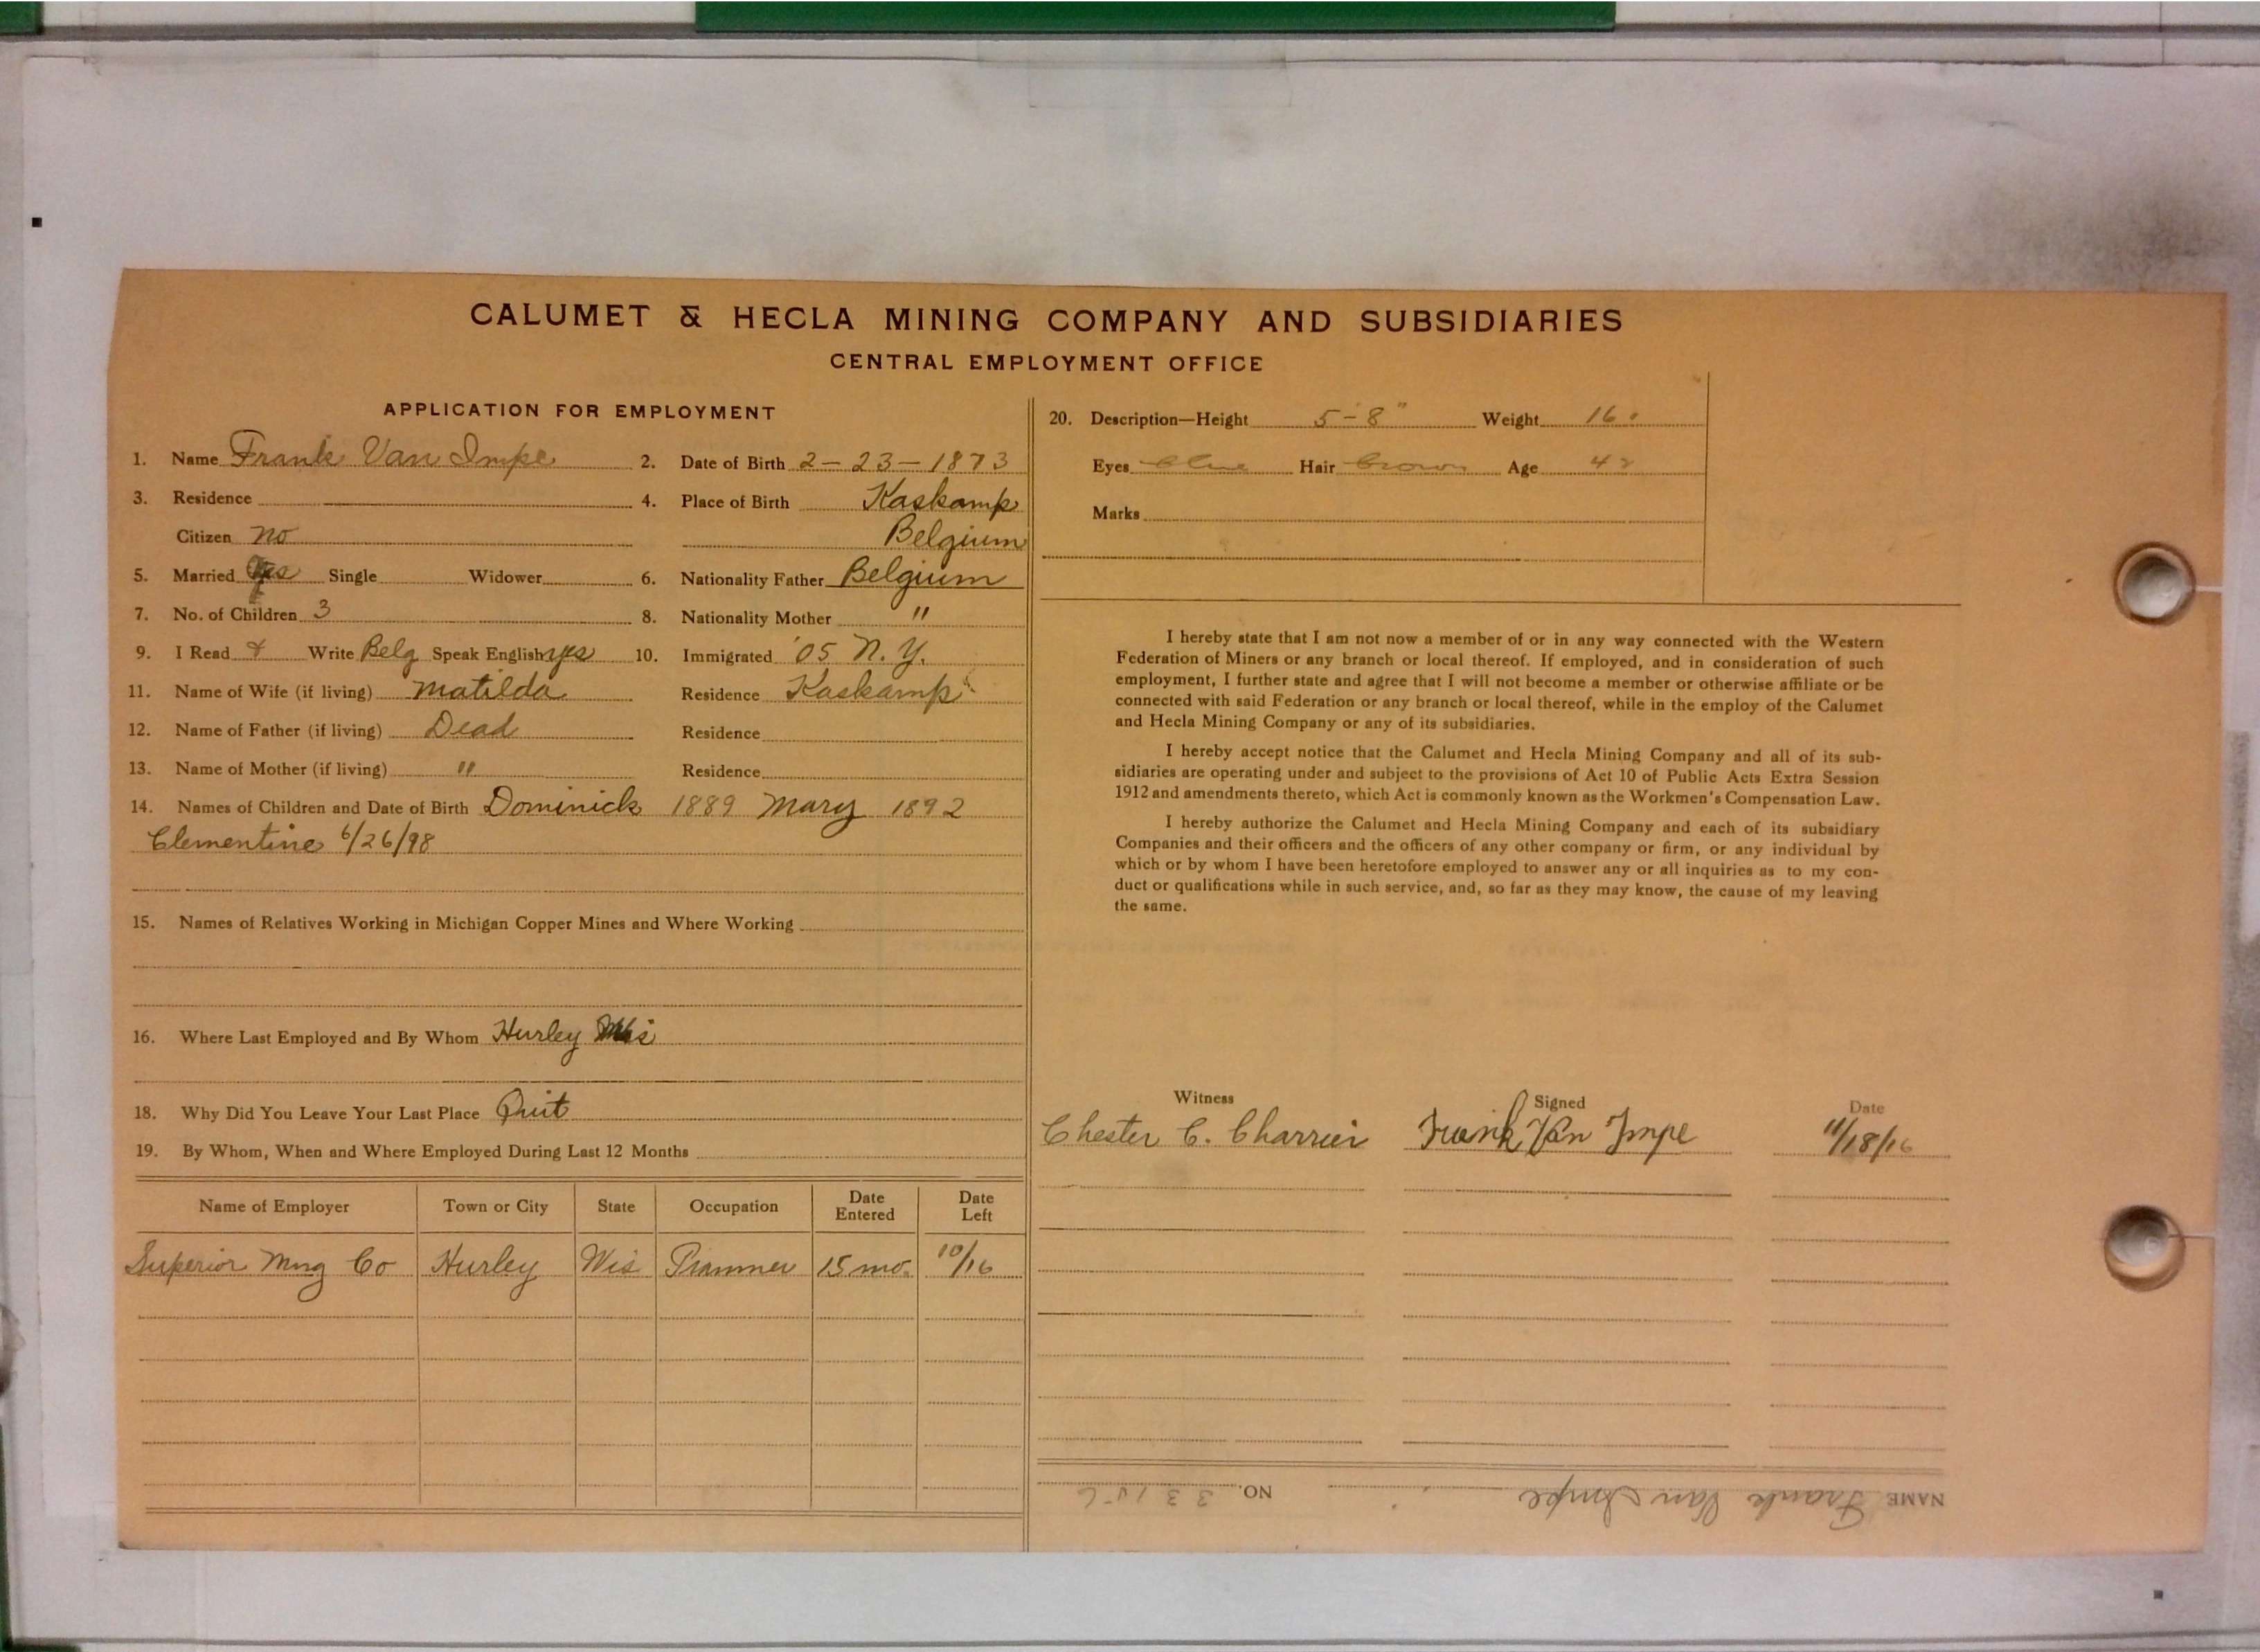 CALUMET & HECLA MINING COMPANY AND SUBSIDIARIES
CENTRAL EMPLOYMENT OFFICE
APPLICATION FOR EMPLOYMENT
1. Name Frank Van Impe 2. Date of Birth 2-23-1873
3. Residence 4. Place of Birth Kaskamp
Citizen no Belgium
5. Married Yes Single Widower 6. Nationality Father Belgium
7. No. of Children 3 8. Nationality Mother "
9. I Read & Write Belg Speak English yes 10. Immigrated '05 N.Y.
11. Name of Wife (if living) Matilda Residence Kaskamp
12. Name of Father (if living) Dead Residence
13. Name of Mother (if living) " Residence
14. Names of Children and Date of Birth Dominick 1889 Mary 1892
Clementine 6/26/98
15. Names of Relatives Working in Michigan Copper Mines and Where Working
16. Where Last Employed and By Whom Hurley Wis
18. Why Did You Leave Your Last Place Quit
19. By Whom, When and Where Employed During Last 12 Months
Name of Employer Town or City State Occupation Date Entered Date Left
Superior Mng Co Hurley Wis 15 mo. 10/16
20. Description—Height 5-8" Weight 160
Eyes blue Hair brown Age 42
Marks
I hereby state that I am not now a member of or in any way connected with the Western
Federation of Miners or any branch or local thereof. If employed, and in consideration of such
employment, I further state and agree that I will not become a member or otherwise affiliate or be
connected with said Federation or any branch or local thereof, while in the employ of the Calumet
and Hecla Mining Company or any of its subsidiaries.
I hereby accept notice that the Calumet and Hecla Mining Company and all of its sub-
sidiaries are operating under and subject to the provisions of Act 10 of Public Acts Extra Session
1912 and amendments thereto, which Act is commonly known as the Workmen's Compensation Law.
I hereby authorize the Calumet and Hecla Mining Company and each of its subsidiary
Companies and their officers and the officers of any other company or firm, or any individual by
which or by whom I have been heretofore employed to answer any or all inquiries as to my con-
duct or qualifications while in such service, and, so far as they may know, the cause of my leaving
the same.
Witness Signed Date
Chester C. Charrier Frank Van Impe 11/18/16
NAME Frank Van Impe NO. 33156